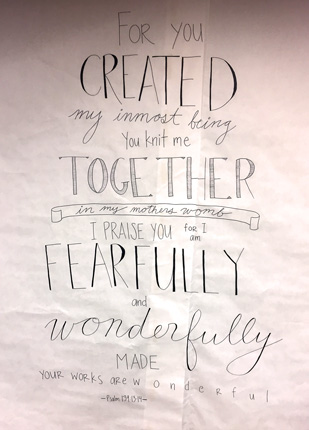 For you
CREATED
my inmost being
You knit me
TOGETHER
in my mothers womb
I PRAISE YOU for I am
FEARFULLY
and
wonderfully
MADE
YOUR WORKS are wonderful
~Psalm 139:13-14~